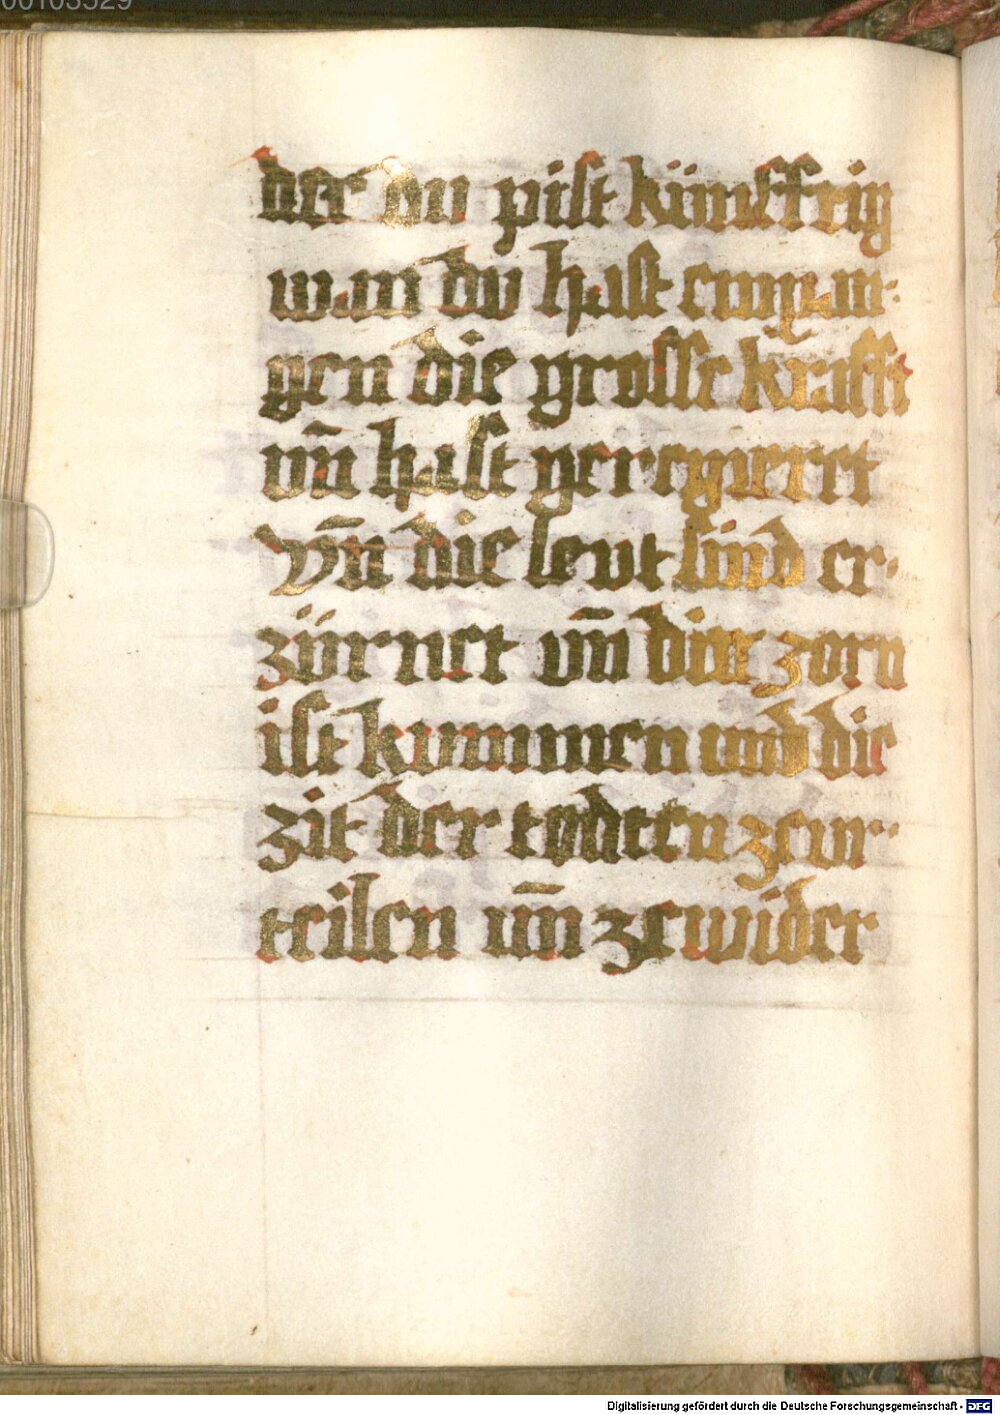 00103529
der du pist kúnfftig
wan du hast empfan-
gen die grosse krafft
vn̄ hast geregneret
Vn̄ die leut sind er-
zúrnet vn̄ din zorn
ist kummen und die
zit der todten ze vr-
teilen vn̄ ze wider
Digitalisierung gefördert durch die Deutsche Forschungsgemeinschaft - DFG